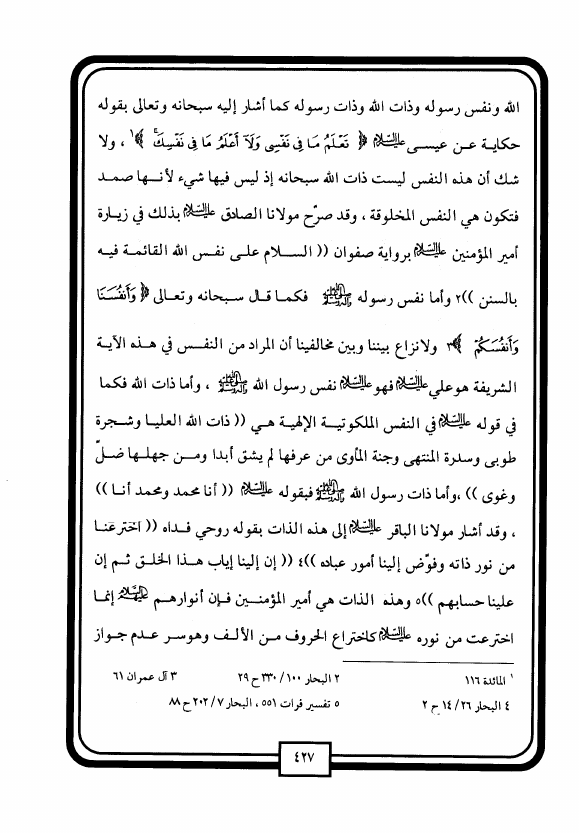 الله ونفس رسوله وذات الله وذات رسوله كما أشار إليه سبحانه وتعالى بقوله
حكاية عن عيسى عليه السلام ﴿ تَعْلَمُ مَا فِي نَفْسِي وَلَآ أَعْلَمُ مَا فِي نَفْسِكَ ﴾١، ولا
شك أن هذه النفس ليست ذات الله سبحانه إذ ليس فيها شيء لأنها صمد
فتكون هي النفس المخلوقة ، وقد صرّح مولانا الصادق عليه السلام بذلك في زيارة
أمير المؤمنين عليه السلام برواية صفوان (( السلام على نفس الله القائمة فيه
بالسنن ))٢ وأما نفس رسوله ﷺ فكما قال سبحانه وتعالى ﴿ وَأَنفُسَنَا
وَأَنفُسَكُمْ ﴾٣ ولانزاع بيننا وبين مخالفينا أن المراد من النفس في هذه الآية
الشريفة هوعلي عليه السلام فهو عليه السلام نفس رسول الله ﷺ ، وأما ذات الله فكما
في قوله عليه السلام في النفس الملكوتية الإلهية هي (( ذات الله العليا وشجرة
طوبى وسدرة المنتهى وجنة المأوى من عرفها لم يشق أبدا ومن جهلها ضلّ
وغوى )) ،وأما ذات رسول الله ﷺ فبقوله عليه السلام (( أنا محمد ومحمد أنا ))
، وقد أشار مولانا الباقر عليه السلام إلى هذه الذات بقوله روحي فداه (( اخترعنا
من نور ذاته وفوّض إلينا أمور عباده ))٤ (( إن إلينا إياب هذا الخلق ثم إن
علينا حسابهم ))٥ وهذه الذات هي أمير المؤمنين فإن أنوارهم عليهم السلام إنما
اخترعت من نوره عليه السلام كاختراع الحروف من الألف وهوسر عدم جواز
١ المائدة ١١٦ ٢ البحار ١٠٠/ ٣٣٠ ح ٢٩ ٣ آل عمران ٦١
٤ البحار ٢٦/ ١٤ ح ٢ ٥ تفسير فرات ٥٥١ ، البحار ٧/ ٢٠٢ ح ٨٨
٤٢٧